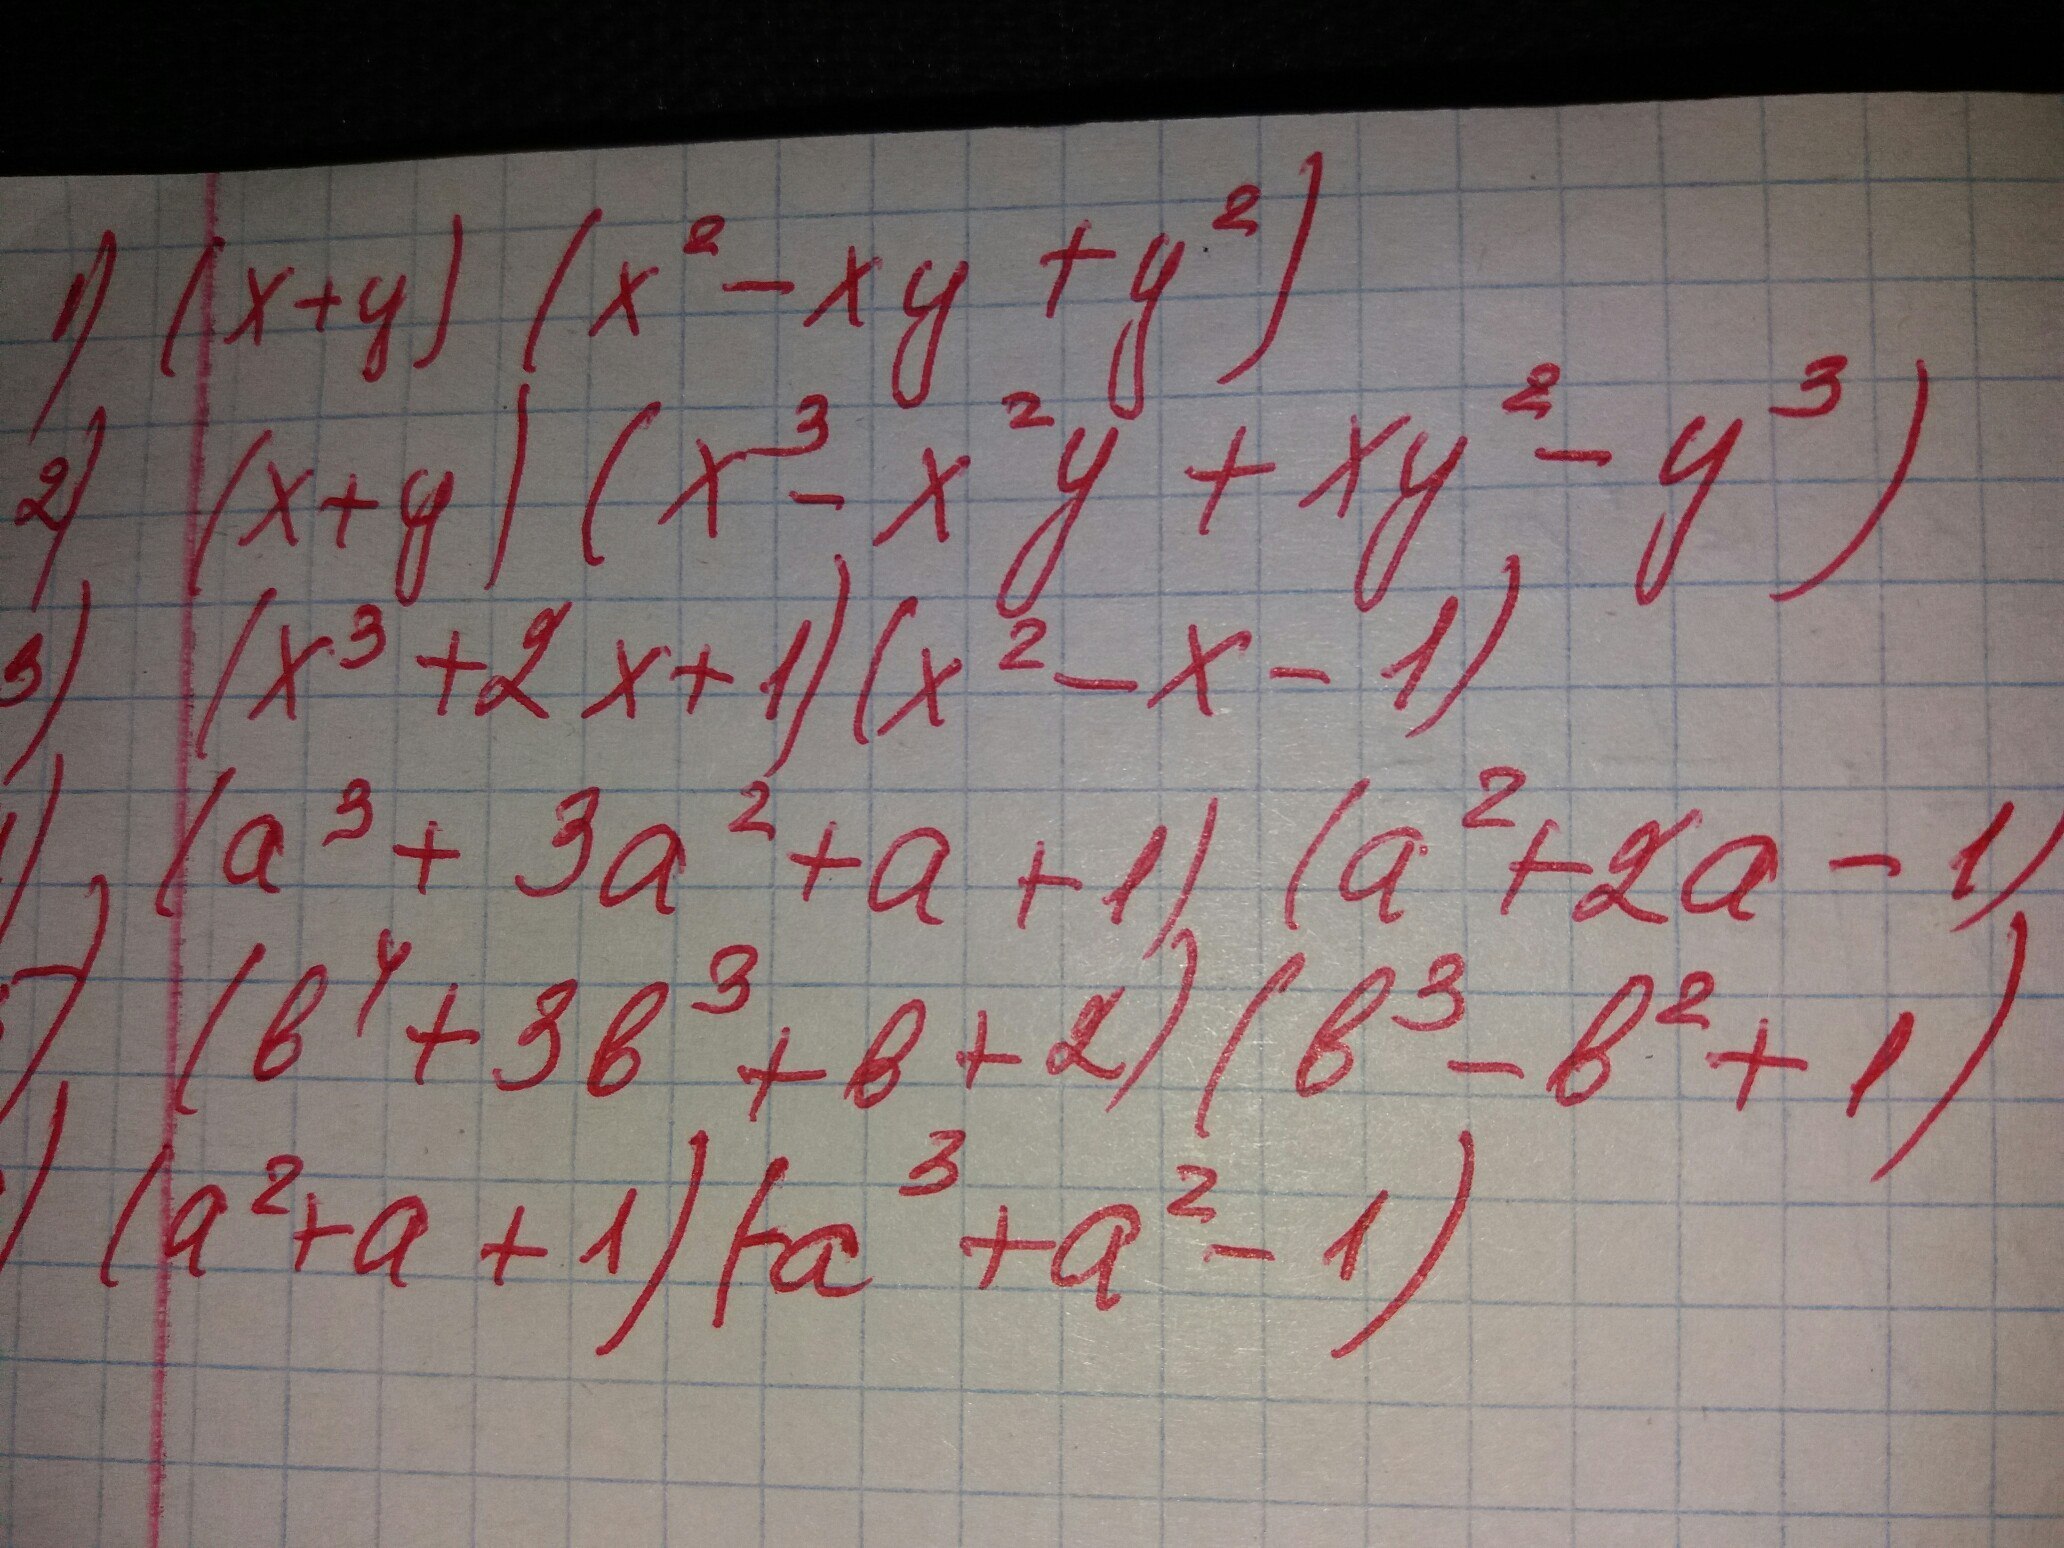 1) (x+y) (x²-xy+y²)
2) (x+y) (x³-x²y+xy²-y³)
3) (x³+2x+1)(x²-x-1)
) (a³+3a²+a+1) (a²+2a-1)
) (в⁴+3в³+в+2) (в³-в²+1)
) (a²+a+1) (-a³+a²-1)